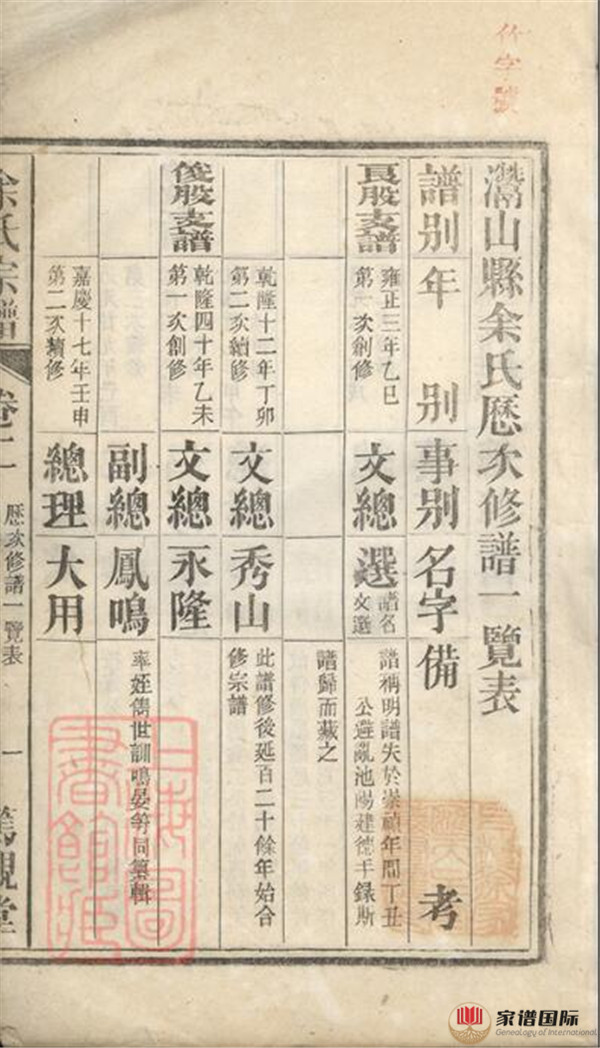 竹字號
灊山縣余氏歷次修譜一覽表
譜別 年別 事別 名字 備考
良股支譜 雍正三年乙巳第一次創修 文總 選 譜名文選 譜稱明譜失於崇禎年間丁丑公避亂池陽建德手錄斯譜歸而藏之
乾隆十二年丁卯第二次續修 文總 秀山 此譜修後延百二十餘年始合修宗譜
俊股支譜 乾隆四十年乙未第一次創修 文總 永隆
副總 鳳鳴 率姪儁世訓鳴晏等同纂輯
嘉慶十七年壬申第二次續修 總理 大用
余氏宗譜 卷二 歷次修譜一覽表 一 篤親堂
上海圖書館藏
家谱国际
Genealogy of International